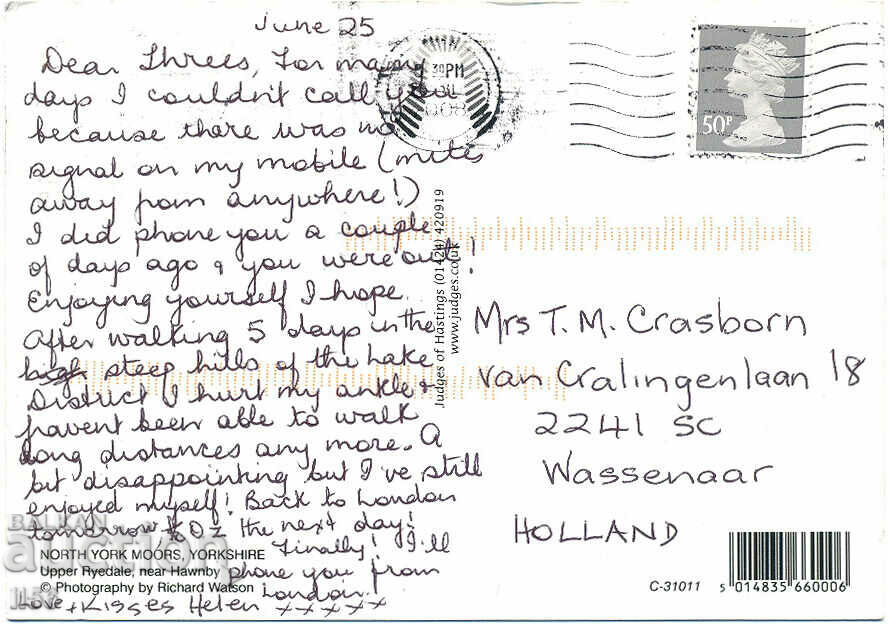 June 25
Dear Threes, For many
days I couldn't call you
because there was no
signal on my mobile (miles
away from anywhere!)
I did phone you a couple
of days ago & you were out!
Enjoying yourself I hope.
After walking 5 days in the
high steep hills of the Lake
District I hurt my ankle &
havent been able to walk
long distances any more. A
bit disappointing but I've still
enjoyed myself! Back to London
tomorrow & Oz the next day!
Finally! I'll
phone you from
London.
Love + Kisses Helen xxxxx
NORTH YORK MOORS, YORKSHIRE
Upper Ryedale, near Hawnby
© Photography by Richard Watson
Judges of Hastings (01424) 420919
www.judges.co.uk
30PM
50P
Mrs T. M. Crasborn
van Cralingenlaan 18
2241 SC
Wassenaar
HOLLAND
C-31011
5 014835 660006
BALKAN
auction